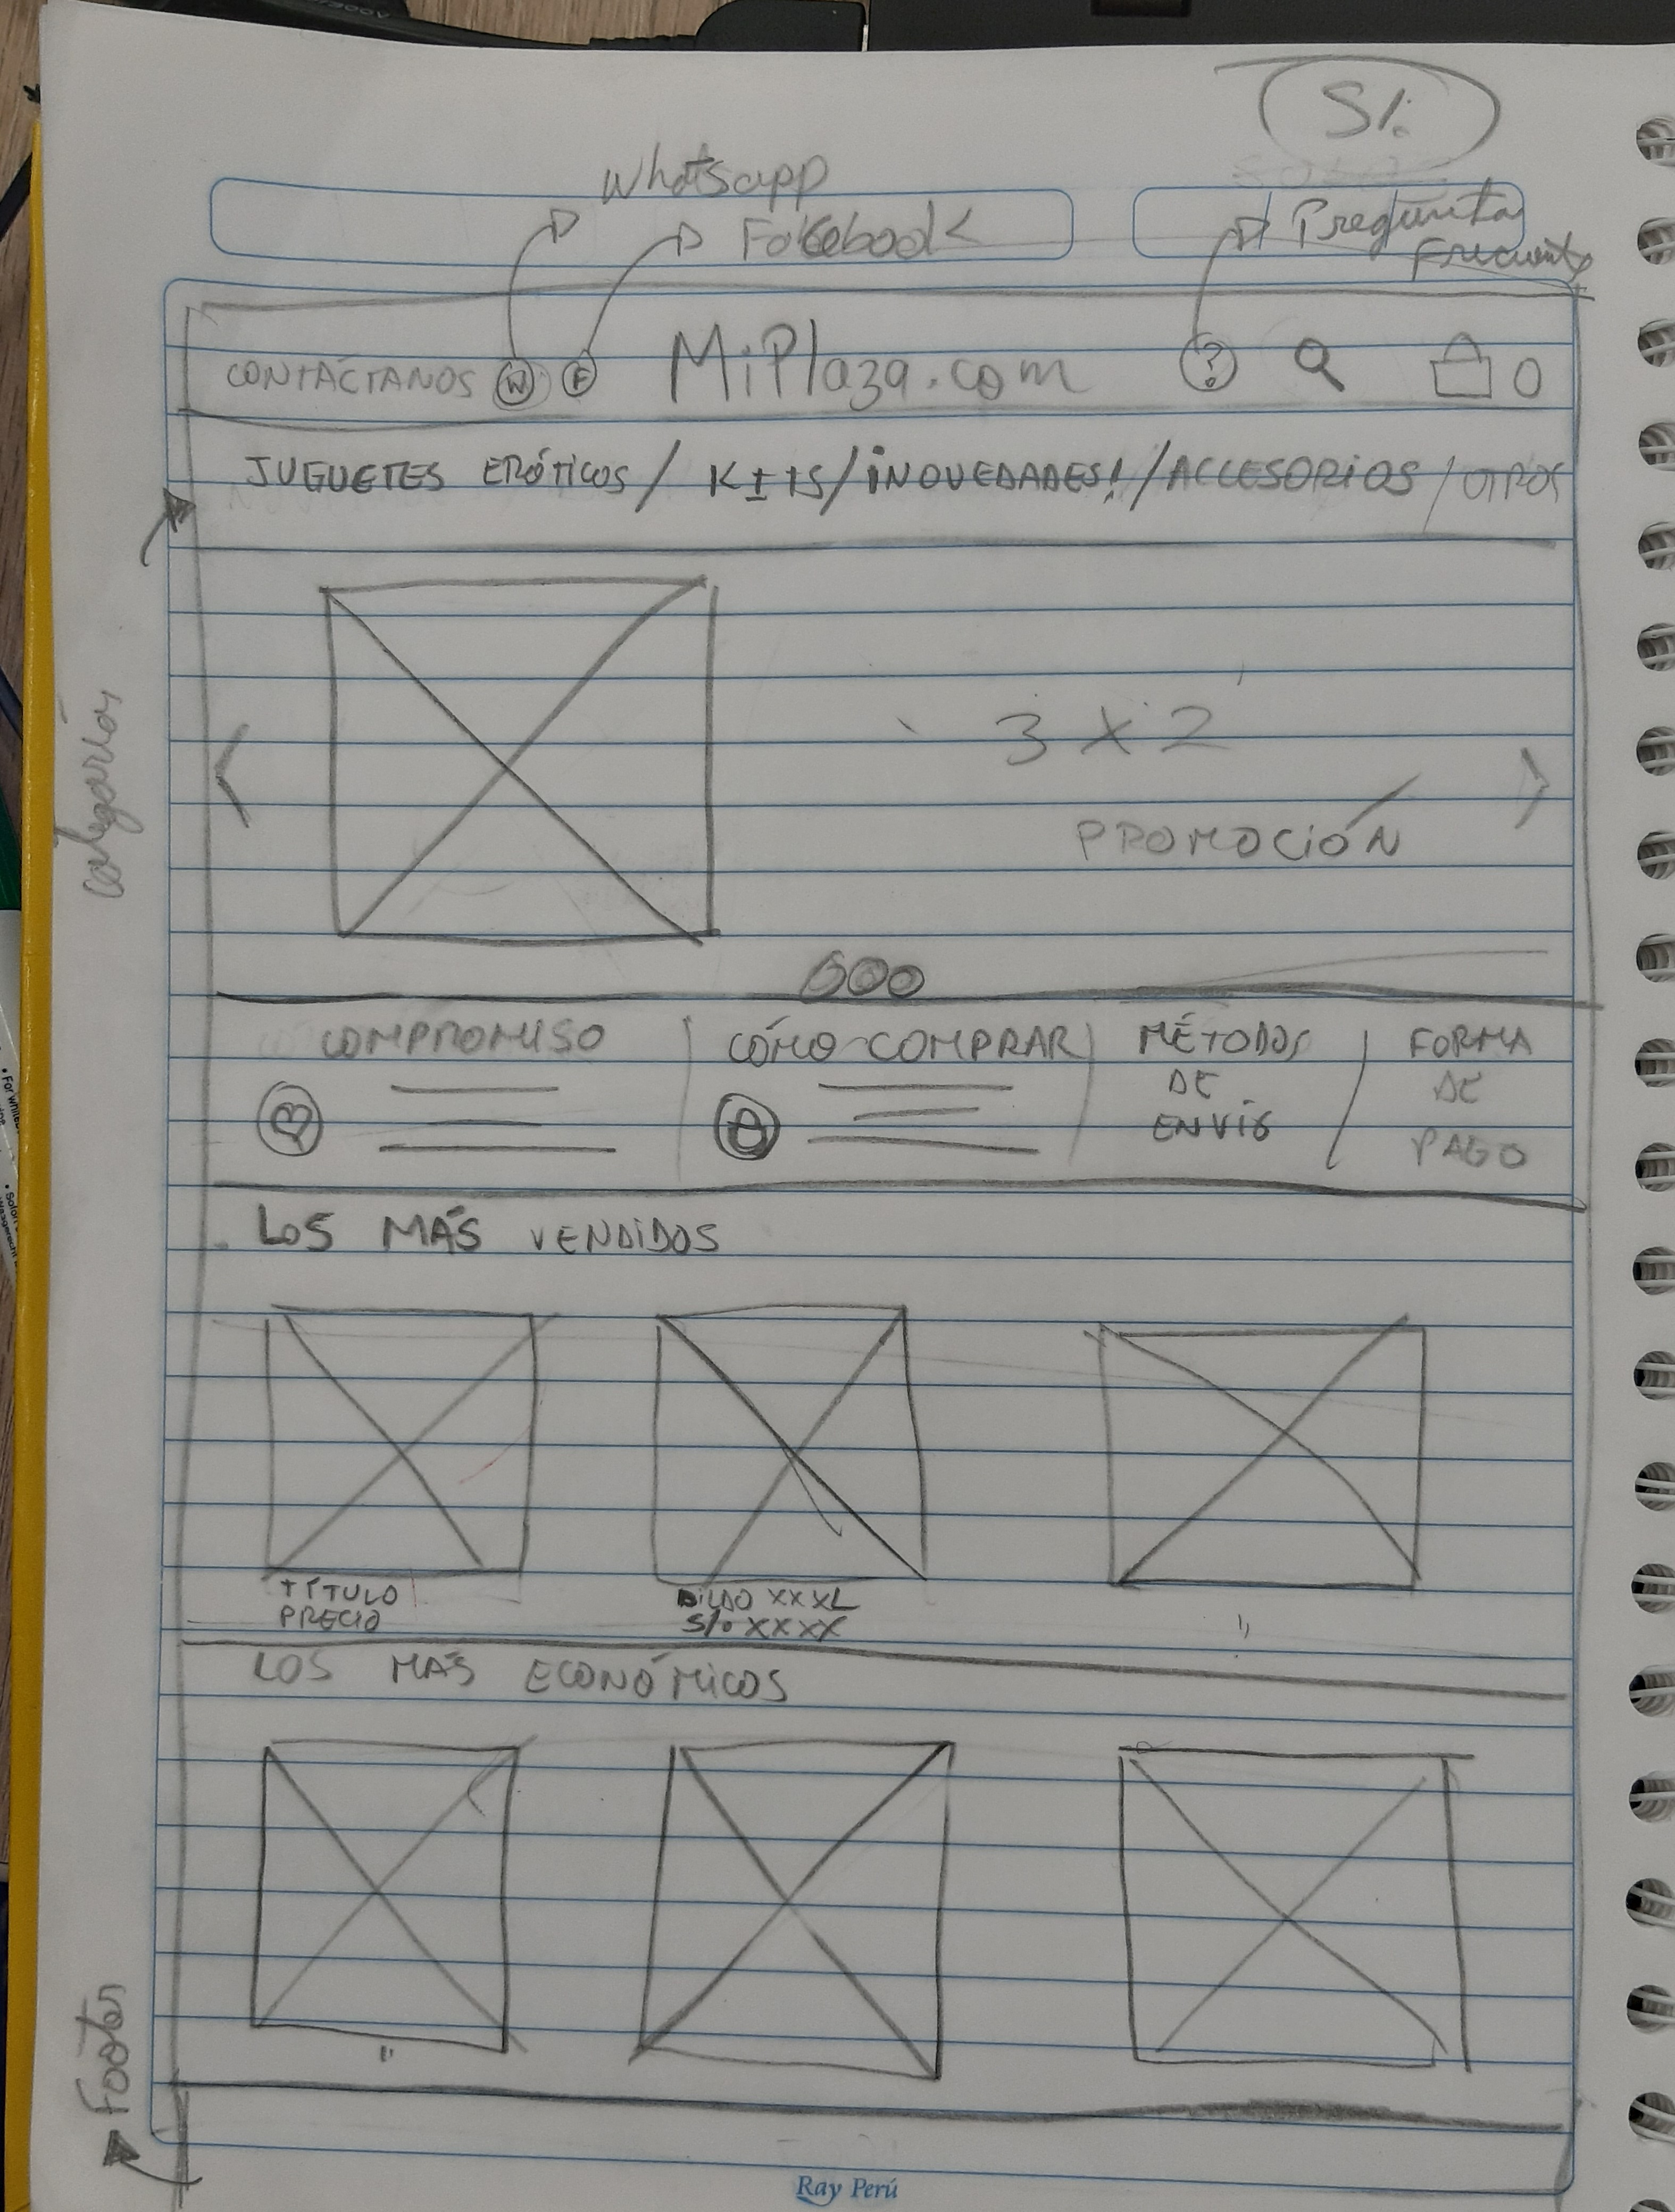 Sí.
Whatsapp
Facebook
Preguntas
Frecuentes
CONTÁCTANOS W F MiPlaza.com ? 0
JUGUETES ERÓTICOS / KITS / ¡NOVEDADES! / ACCESORIOS / OTROS
categorías
< >
3 X 2
PROMOCIÓN
COMPROMISO
CÓMO COMPRAR
MÉTODOS
DE
ENVÍO
FORMA
DE
PAGO
LOS MÁS VENDIDOS
TÍTULO
PRECIO
DILDO XXXL
S/. XXXX
"
LOS MÁS ECONÓMICOS
"
Footer
Ray Perú